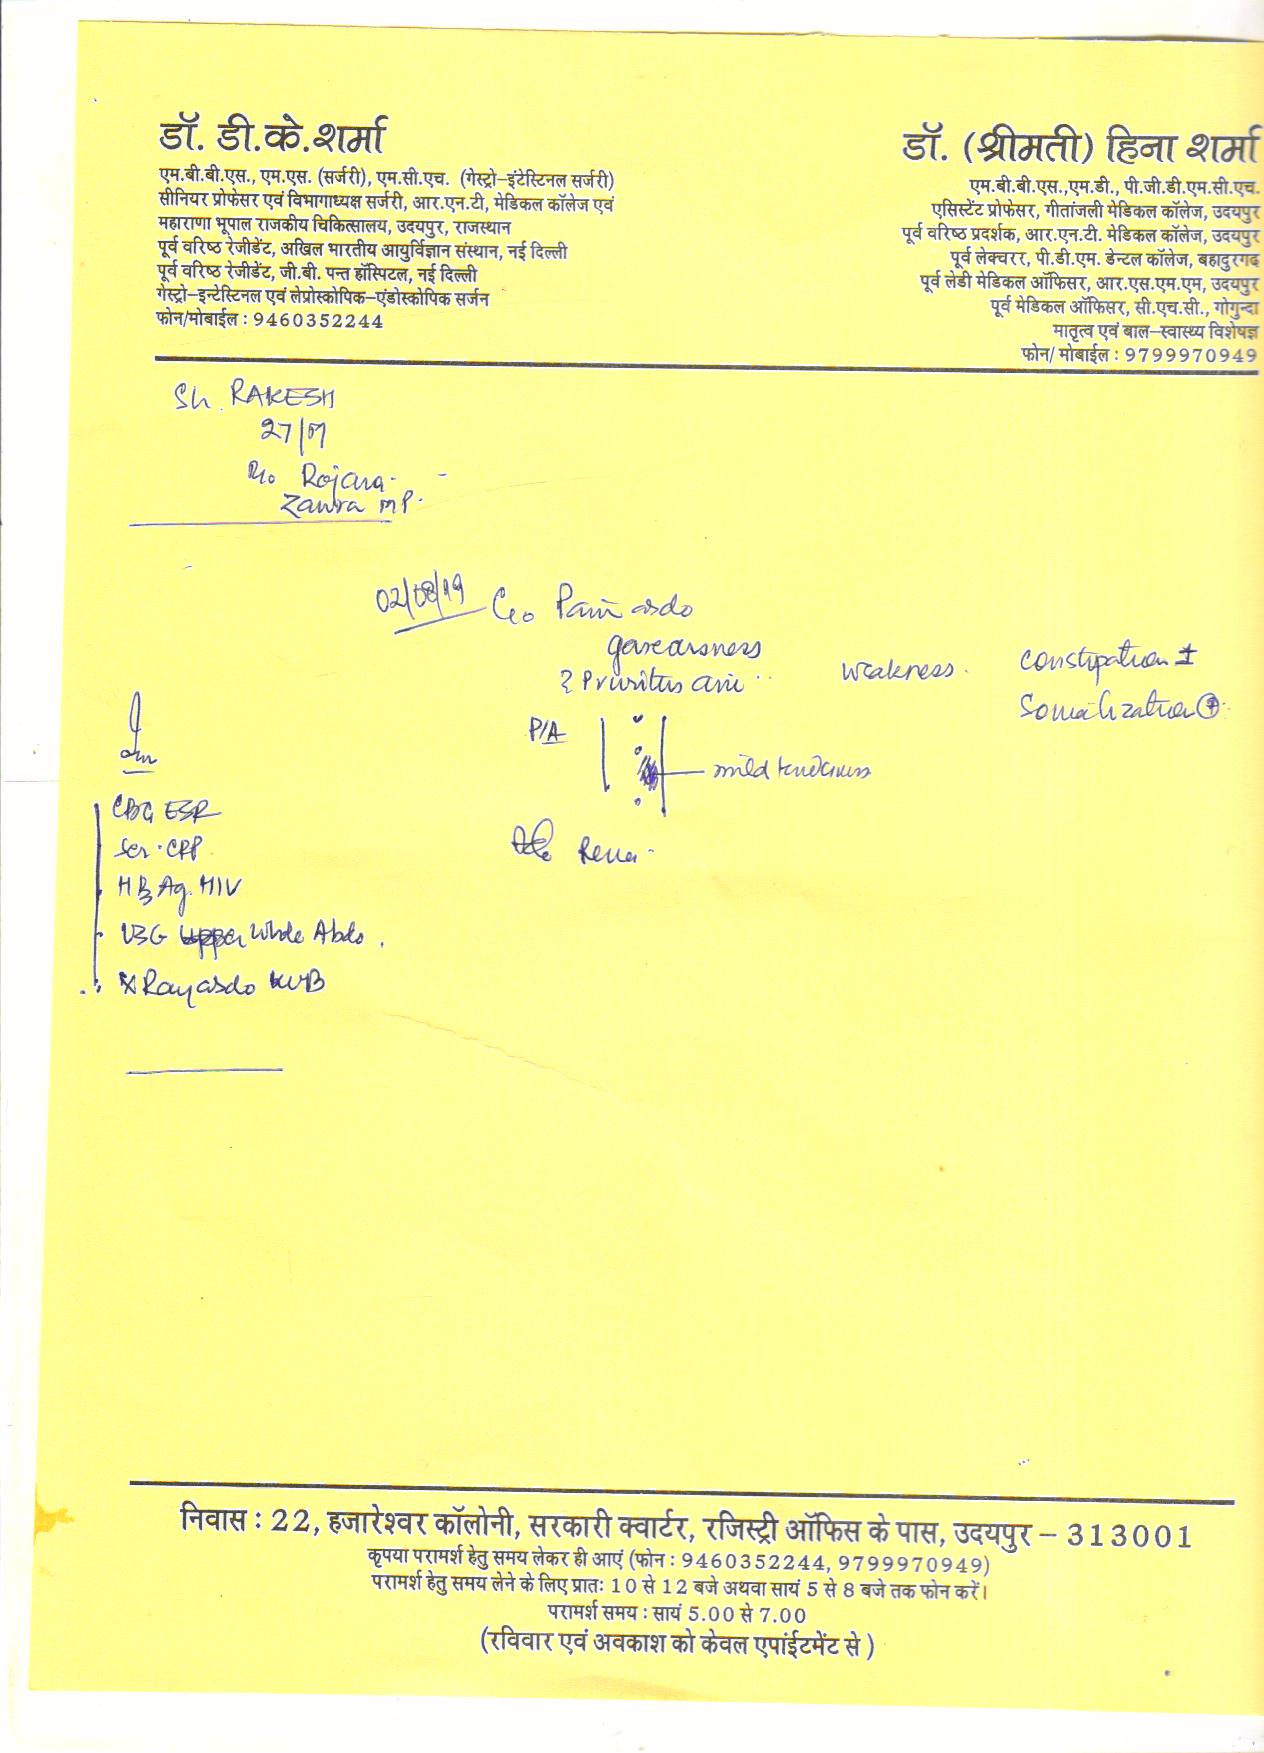 डॉ. डी.के.शर्मा
एम.बी.बी.एस., एम.एस. (सर्जरी), एम.सी.एच. (गेस्ट्रो-इंटेस्टिनल सर्जरी)
सीनियर प्रोफेसर एवं विभागाध्यक्ष सर्जरी, आर.एन.टी, मेडिकल कॉलेज एवं
महाराणा भूपाल राजकीय चिकित्सालय, उदयपुर, राजस्थान
पूर्व वरिष्ठ रेजीडेंट, अखिल भारतीय आयुर्विज्ञान संस्थान, नई दिल्ली
पूर्व वरिष्ठ रेजीडेंट, जी.बी. पन्त हॉस्पिटल, नई दिल्ली
गेस्ट्रो-इन्टेस्टिनल एवं लेप्रोस्कोपिक-एंडोस्कोपिक सर्जन
फोन/मोबाईल : 9460352244
डॉ. (श्रीमती) हिना शर्मा
एम.बी.बी.एस.,एम.डी., पी.जी.डी.एम.सी.एच.
एसिस्टेंट प्रोफेसर, गीतांजली मेडिकल कॉलेज, उदयपुर
पूर्व वरिष्ठ प्रदर्शक, आर.एन.टी. मेडिकल कॉलेज, उदयपुर
पूर्व लेक्चरर, पी.डी.एम. डेन्टल कॉलेज, बहादुरगढ
पूर्व लेडी मेडिकल ऑफिसर, आर.एस.एम.एम, उदयपुर
पूर्व मेडिकल ऑफिसर, सी.एच.सी., गोगुन्दा
मातृत्व एवं बाल-स्वास्थ्य विशेषज्ञ
फोन/ मोबाईल : 9799970949
Sh. RAKESH
27/M
R/o Rojana
Zawra MP.
02/08/19 C/o Pain abdo
weakness. constipation ±
? Pruritus ani
Somatization ⊕
P/A
mild tenderness
CBC ESR
Ser. CRP
HBsAg. HIV
USG Whole Abdo.
X Ray abdo KUB
निवास : 22, हजारेश्वर कॉलोनी, सरकारी क्वार्टर, रजिस्ट्री ऑफिस के पास, उदयपुर – 313001
कृपया परामर्श हेतु समय लेकर ही आएं (फोन : 9460352244, 9799970949)
परामर्श हेतु समय लेने के लिए प्रातः 10 से 12 बजे अथवा सायं 5 से 8 बजे तक फोन करें।
परामर्श समय : सायं 5.00 से 7.00
(रविवार एवं अवकाश को केवल एपांईटमेंट से )